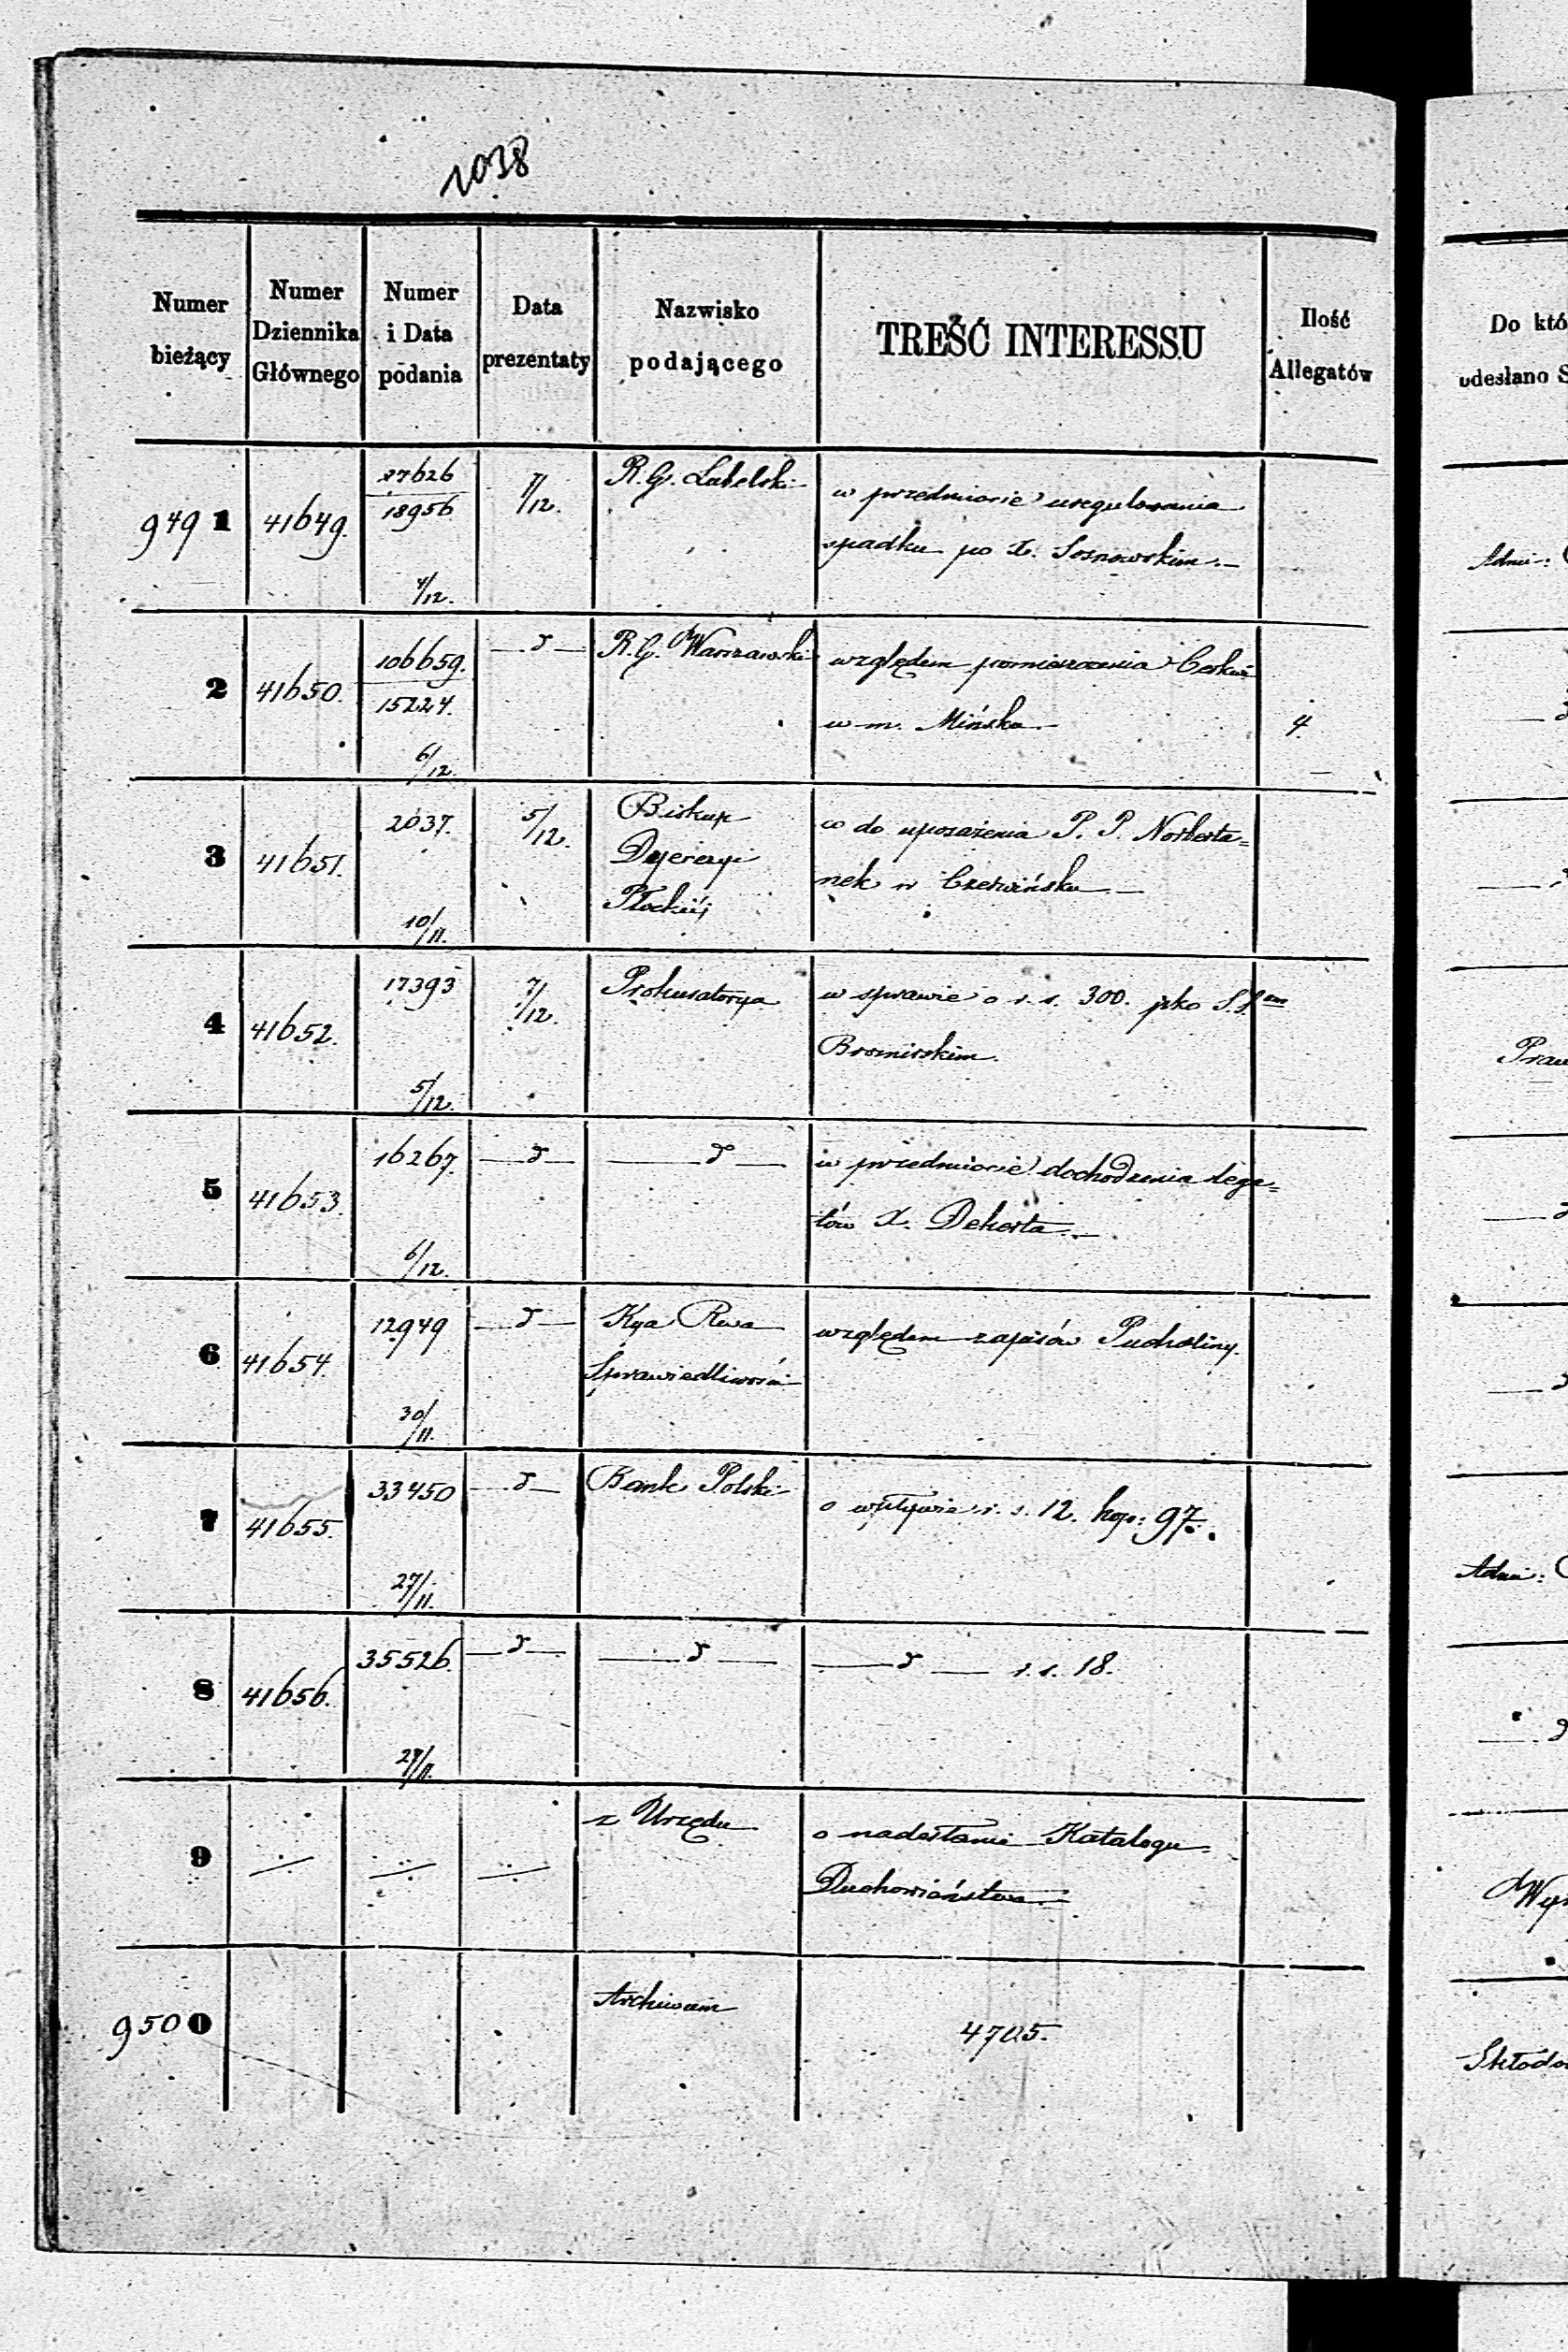 1038
Numer bieżący
Numer Dziennika Głównego
Numer i Data podania
Data prezentaty
Nazwisko podającego
TREŚĆ INTERESSU
Ilość Allegatów
Do któ
odesłano S
949 1 41649. 27626 7/12. R. G. Lubelski w przedmiocie uregulowania
18956 spadku po X. Sosnowskim.—
4/12.
Admi:
2 41650. 106659. —d— R. G. Warszawski względem pomieszczenia Cerkwi
15224. w m. Mińsku.— 4
6/12.
3 41651. 2037. 5/12. Biskup co do uposażenia P. P. Norberta=
Dyecezyi nek w Czerwińsku.—
Płockiéj
10/11.
4 41652. 17393 7/12. Prokuratorya w sprawie o r. s. 300. pko
Bromirskim.
5/12.
Praw
5 41653. 16267. —d— —d— w przedmiocie dochodzenia lega=
tów X. Dekerta.—
6/12.
6 41654. 12949 —d— Kya Rwa względem zapisów Pucholiny.
Sprawiedliwości
30/11.
7 41655. 33450 —d— Bank Polski o wpływie r. s. 12. kop: 97.
27/11.
Admi:
8 41656. 35526. —d— —d— —d— r. s. 18.
27/11.
9 z Urzędu o nadesłanie Katalogu
Duchowieństwa.—
Wy
950 0 Archiwum 4705.
Składa